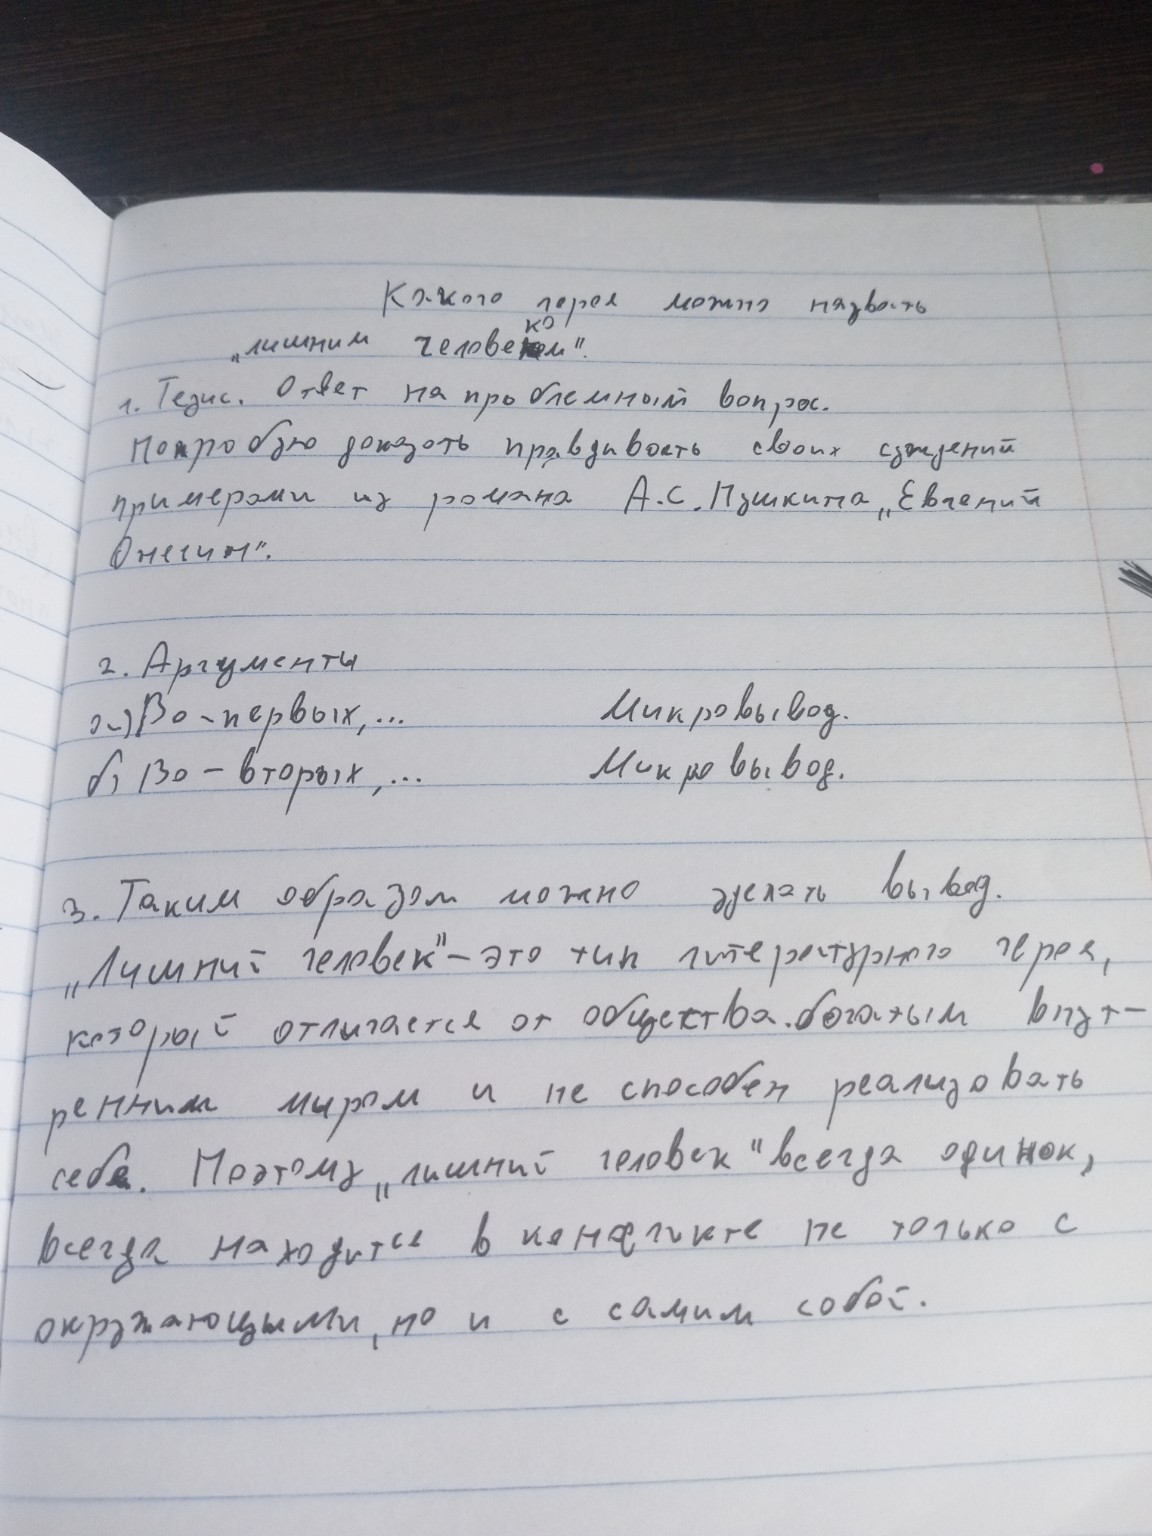 Какого героя можно назвать
„лишним человеком".
1. Тезис. Ответ на проблемный вопрос.
Попробую доказать правдивость своих суждений
примерами из романа А.С. Пушкина „Евгений
Онегин".
2. Аргументы
а) Во-первых, ... Микровывод.
б) Во-вторых, ... Микровывод.
3. Таким образом можно сделать вывод.
„Лишний человек" – это тип литературного героя,
который отличается от общества богатым внут-
ренним миром и не способен реализовать
себя. Поэтому „лишний человек" всегда одинок,
всегда находится в конфликте не только с
окружающими, но и с самим собой.